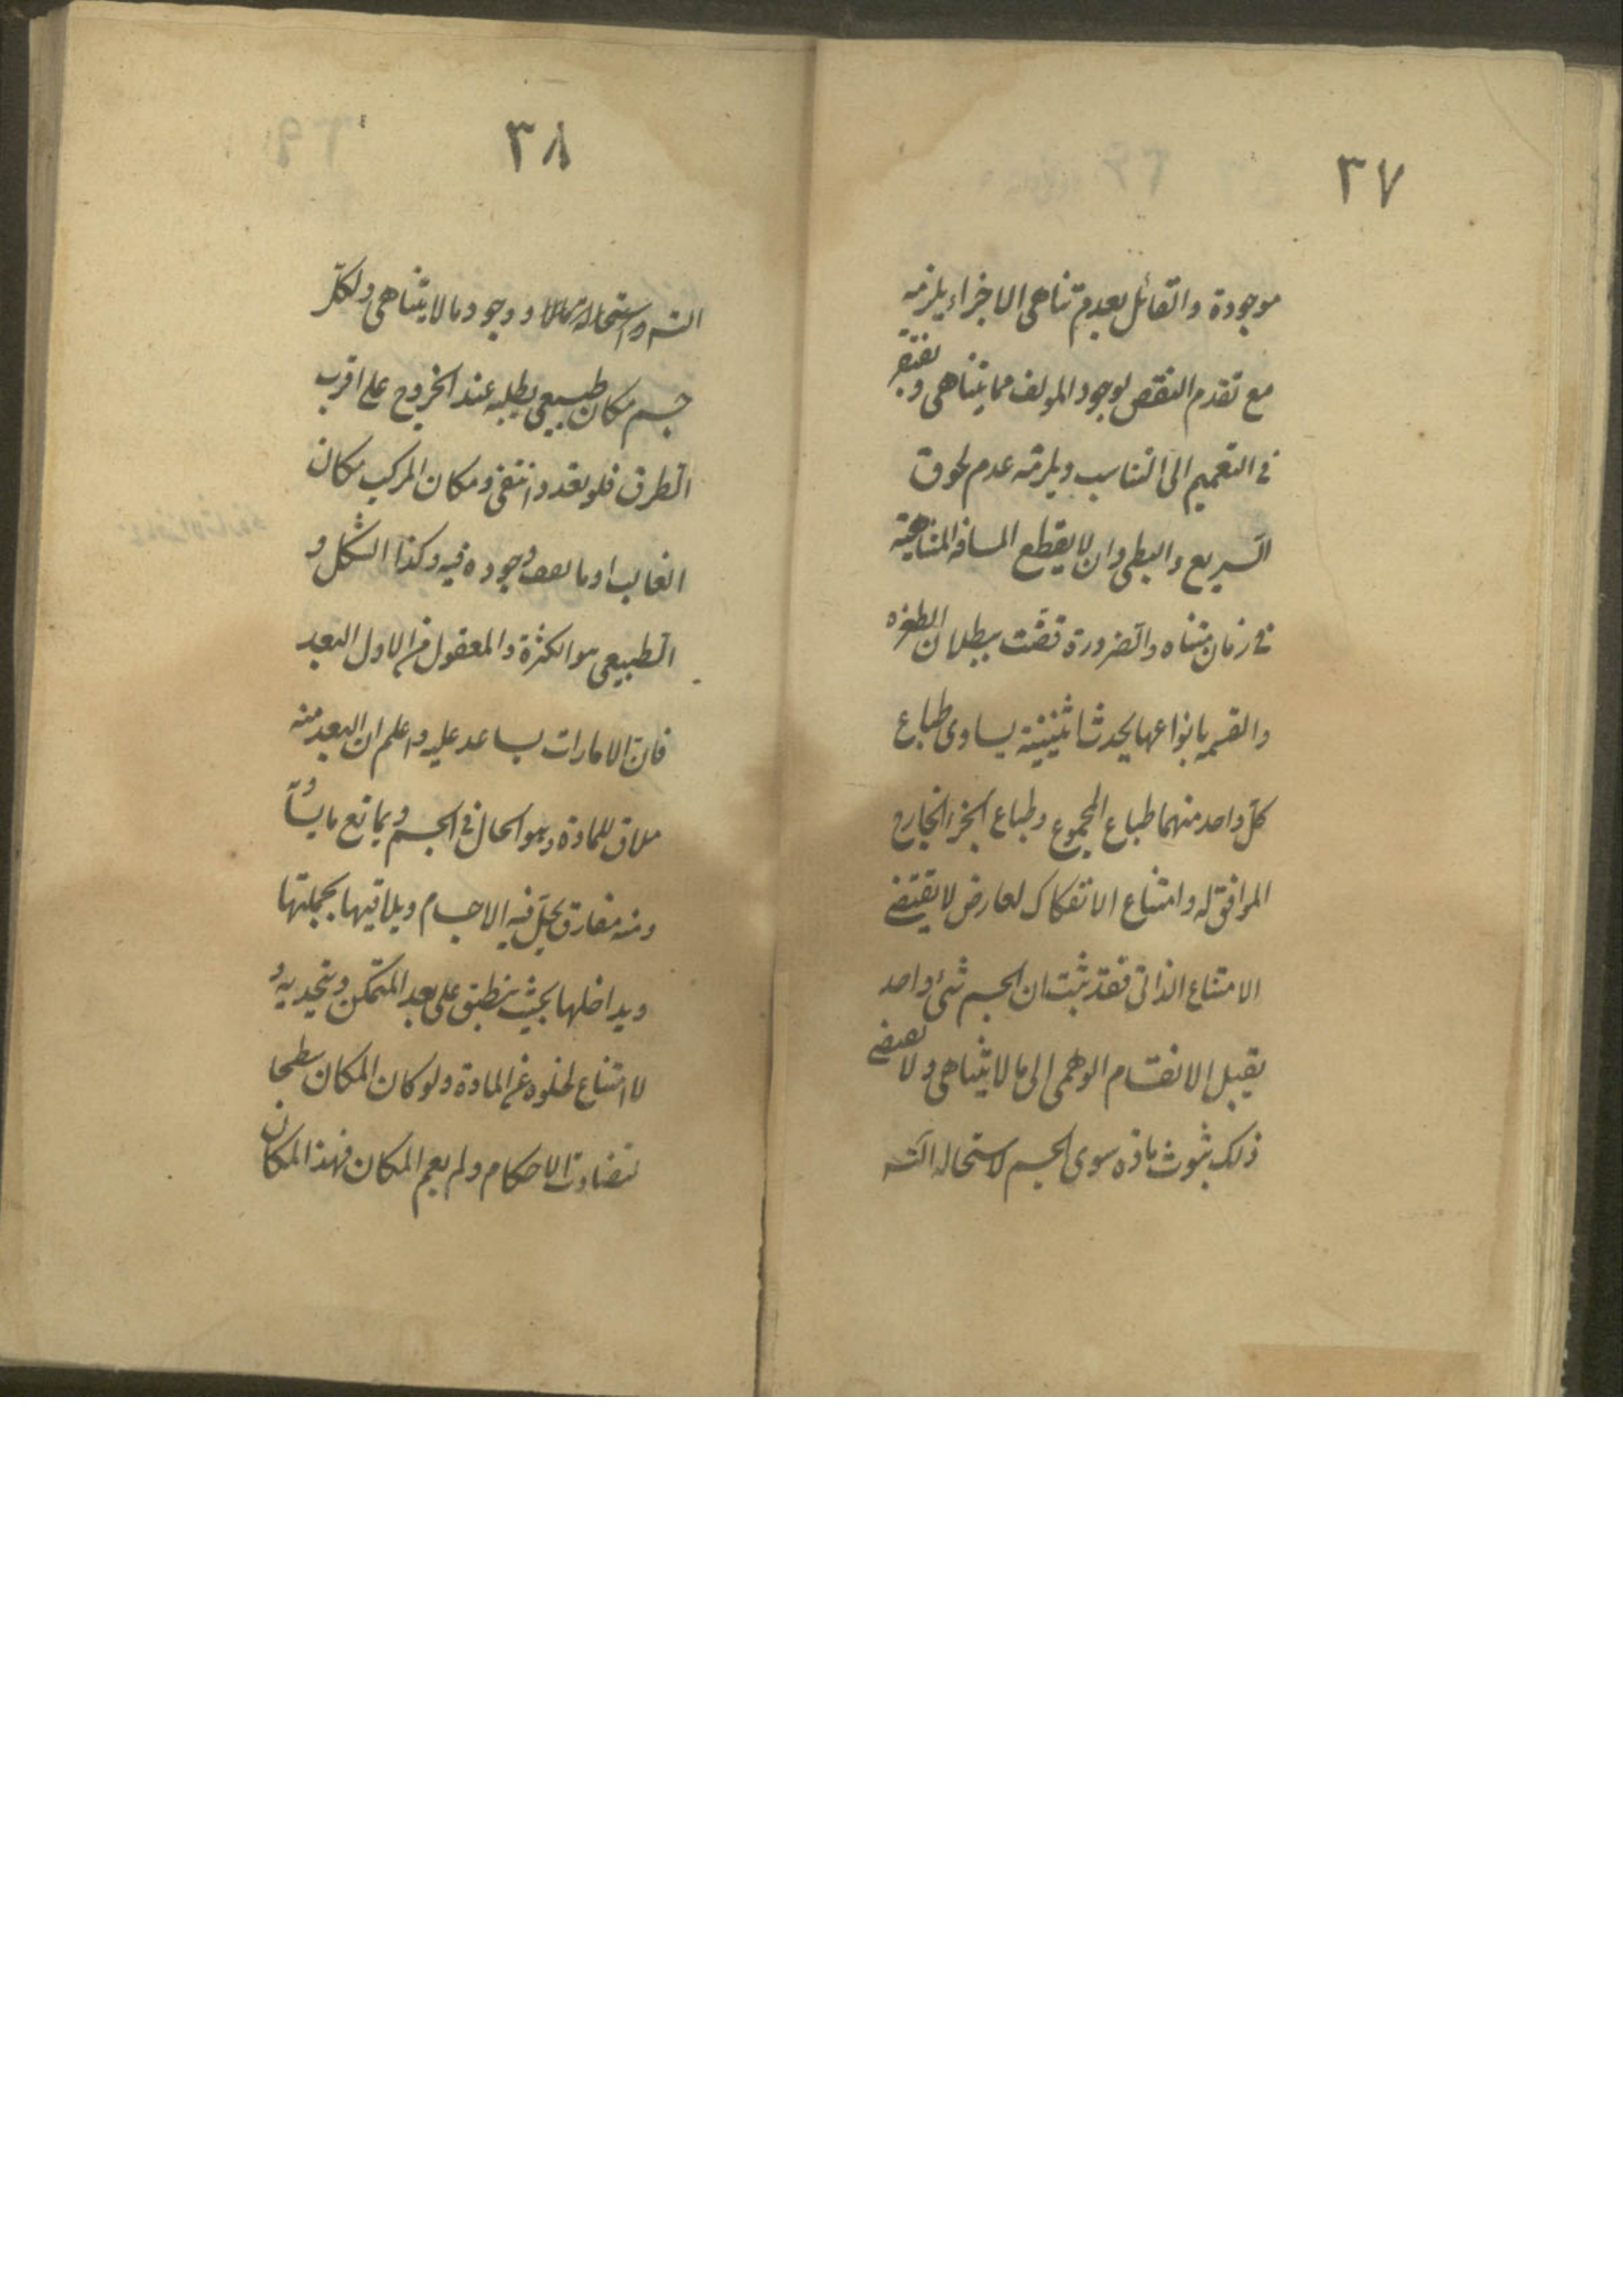 ٣٧
موجودة والقائل بعدم تناهى الاجزاء يلزمه
مع تقدم النقض لوجود المولف مما يتناهى ويفتقر
فى التعميم الى التناسب ويلزمه عدم لحوق
السريع والبطى وان لا يقطع المسافه المتناهية
فى زمان متناه والضرورة قضت ببطلان الطفره
والقسمه بانواعها يحدث اثنينية يساوى طباع
كل واحد منهما طباع المجموع وطباع الجزء الخارج
الموافق له وامتناع الانفكاك لعارض لا يقتضى
الامتناع الذاتى فقد ثبت ان الجسم شئ واحد
يقبل الانقسام الوهمى الى ما لا يتناهى ولا يقتضى
ذلك ثبوت مادة سوى الجسم لاستحاله التسـ
٣٨
التسـ واستحاله ووجود ما لا يتناهى ولكل
جسم مكان طبيعى يطلبه عند الخروج على اقرب
الطرق فلو تعدد انتفى ومكان المركب مكان
الغالب او ما اتفق وجوده فيه وكذا الشكل و
الطبيعى هو الكثرة والمعقول من الاول البعد
فان الامارات يساعد عليه واعلم ان البعد منه
ملاق للمادة وهو الحال فى الجسم ويمانع مايساو
ومنه مفارق يحل فيه الاجسام ويلاقيها بجملتها
ويداخلها بحيث ينطبق على بعد المتمكن ويتحد به و
لا امتناع لخلوه عن المادة ولو كان المكان سطحا
لتضادت الاحكام ولم يعم المكان فهذا المكان